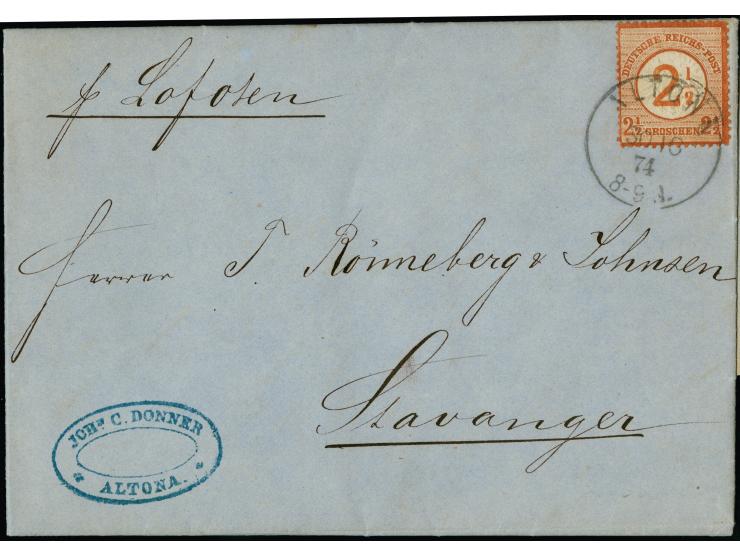 p Lofoten
DEUTSCHE REICHS-POST
2 1/2
2 1/2 GROSCHEN 2 1/2
ALTON
30 10
74
8-9 A.
Herren T. Rönneberg & Johnsen
Stavanger
JOHS C. DONNER
ALTONA.